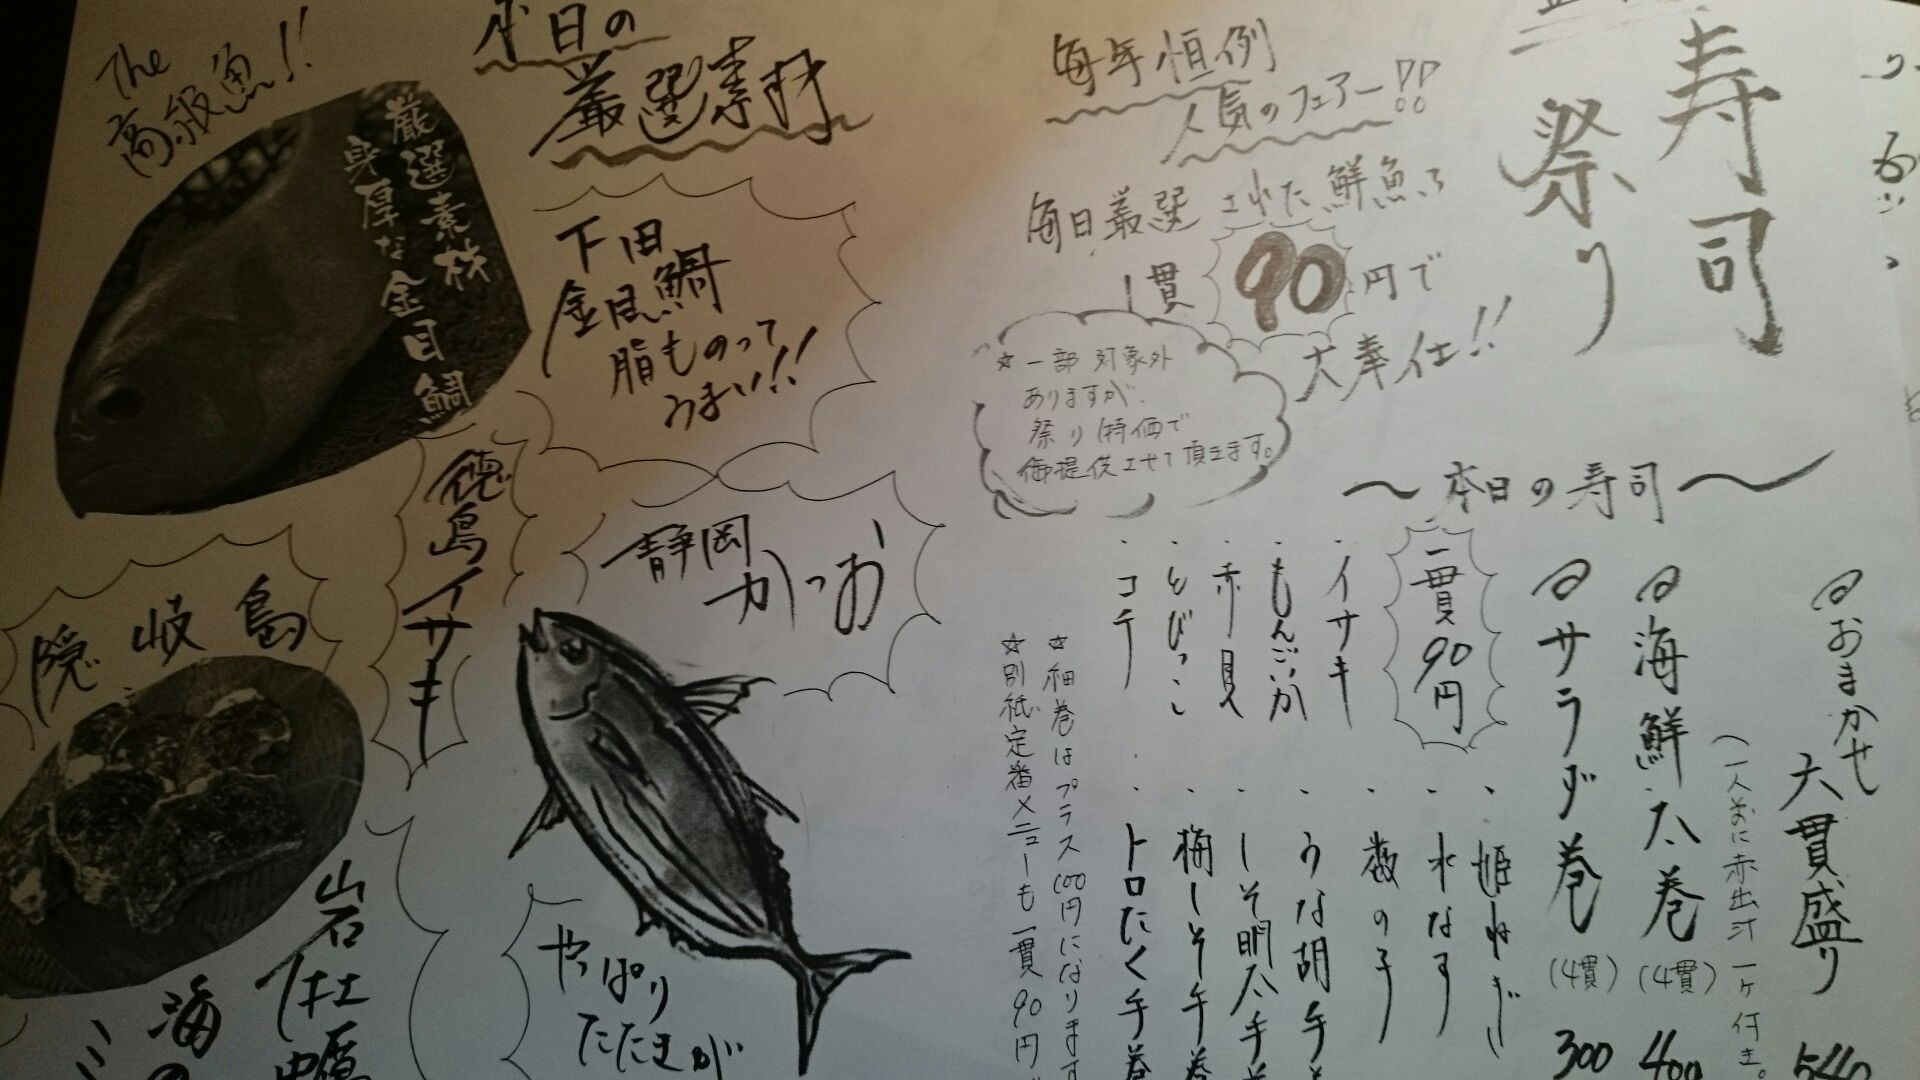 The
高級魚!!
厳選素材
身厚な金目鯛
本日の
厳選素材
下田
金目鯛
脂ものって
うまい!!
徳島イサキ
静岡
かつお
隠岐島
岩牡蠣
海の
ミ
やっぱり
たたきが
寿司
祭り
毎年恒例
人気のフェアー!!
毎日厳選された鮮魚を
1貫90円で
大奉仕!!
☆一部対象外
ありますが、
祭り特価で
御提供させて頂きます。
〜本日の寿司〜
おまかせ
六貫盛り
(一人前に赤出汁一ケ付き。)
海鮮太巻(4貫)400
サラダ巻(4貫)300
一貫90円
・イサキ
・もんごいか
・赤貝
・とびっこ
・コチ
・姫ねぎ
・水なす
・数の子
・うな胡手
・しそ明太手
・梅しそ手巻
・トロたく手巻
☆細巻はプラス100円になります
☆別紙定番メニューも一貫90円